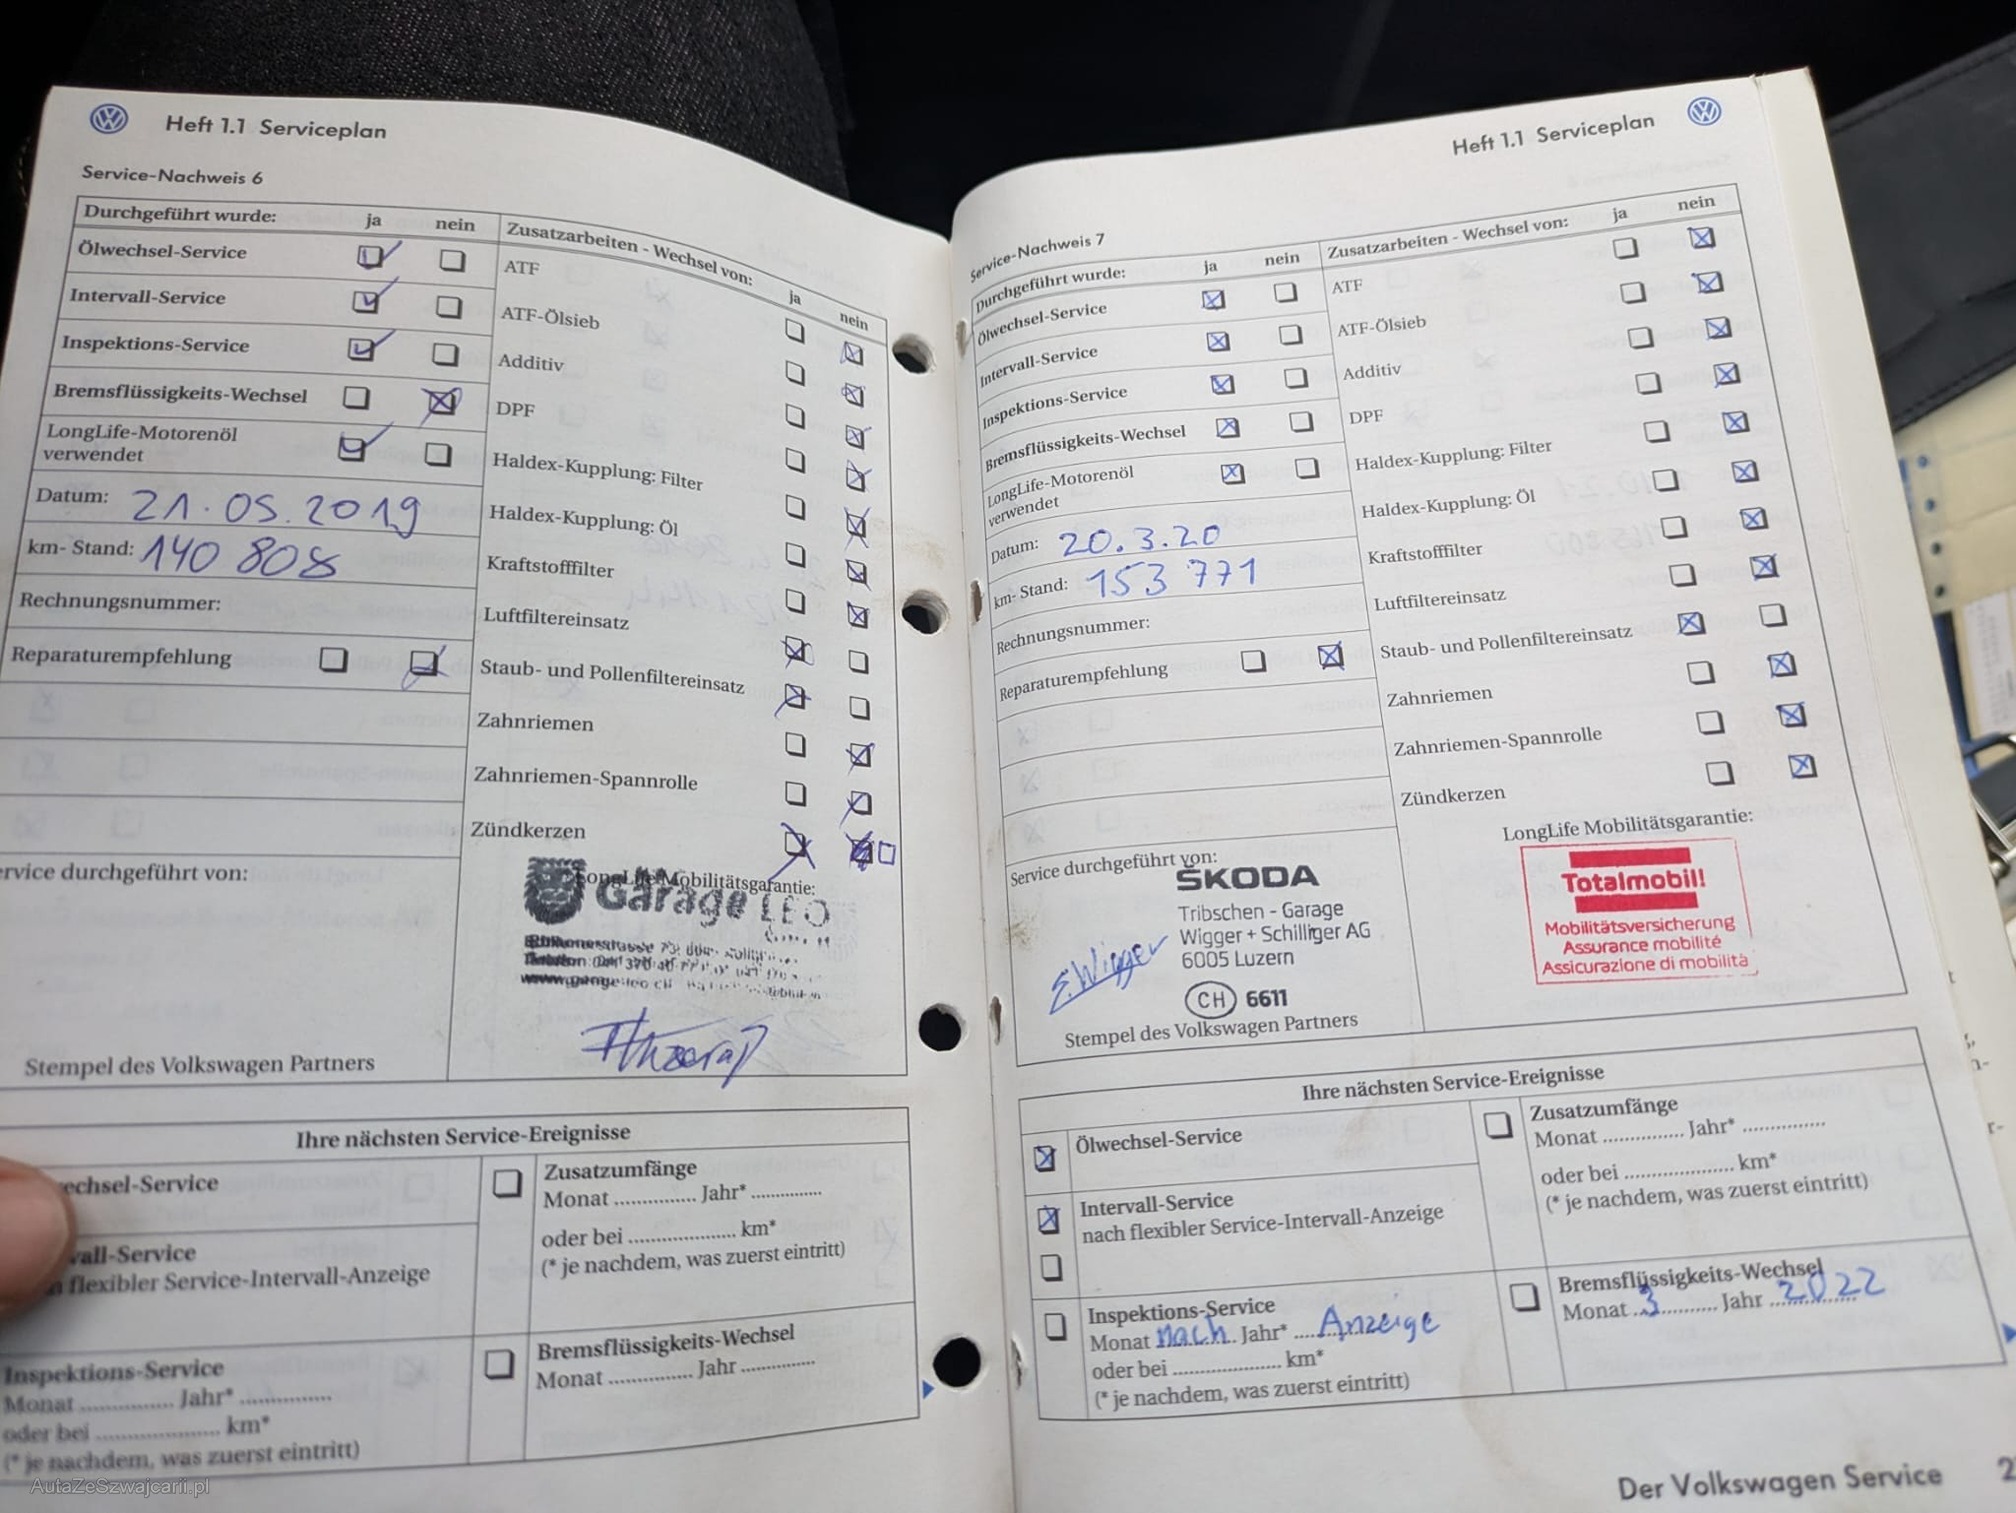 Heft 1.1 Serviceplan
Service-Nachweis 6
Durchgeführt wurde: ja nein
Ölwechsel-Service
Intervall-Service
Inspektions-Service
Bremsflüssigkeits-Wechsel
LongLife-Motorenöl
verwendet
Datum: 21.05.2019
km- Stand: 140 808
Rechnungsnummer:
Reparaturempfehlung
rvice durchgeführt von:
Stempel des Volkswagen Partners
Zusatzarbeiten - Wechsel von:
ja nein
ATF
ATF-Ölsieb
Additiv
DPF
Haldex-Kupplung: Filter
Haldex-Kupplung: Öl
Kraftstofffilter
Luftfiltereinsatz
Staub- und Pollenfiltereinsatz
Zahnriemen
Zahnriemen-Spannrolle
Zündkerzen
LongLife Mobilitätsgarantie:
Garage LEO
Ihre nächsten Service-Ereignisse
echsel-Service
vall-Service
flexibler Service-Intervall-Anzeige
Inspektions-Service
Monat ............... Jahr* ..............
oder bei .................... km*
(* je nachdem, was zuerst eintritt)
Zusatzumfänge
Monat .............. Jahr* ............
oder bei .................... km*
(* je nachdem, was zuerst eintritt)
Bremsflüssigkeits-Wechsel
Monat .............. Jahr .............
Heft 1.1 Serviceplan
Service-Nachweis 7
Durchgeführt wurde: ja nein
Ölwechsel-Service
Intervall-Service
Inspektions-Service
Bremsflüssigkeits-Wechsel
LongLife-Motorenöl
verwendet
Datum: 20.3.20
km- Stand: 153 771
Rechnungsnummer:
Reparaturempfehlung
Service durchgeführt von:
ŠKODA
Tribschen - Garage
Wigger + Schilliger AG
6005 Luzern
E. Wigger
CH 6611
Stempel des Volkswagen Partners
Zusatzarbeiten - Wechsel von: ja nein
ATF
ATF-Ölsieb
Additiv
DPF
Haldex-Kupplung: Filter
Haldex-Kupplung: Öl
Kraftstofffilter
Luftfiltereinsatz
Staub- und Pollenfiltereinsatz
Zahnriemen
Zahnriemen-Spannrolle
Zündkerzen
LongLife Mobilitätsgarantie:
Totalmobil!
Mobilitätsversicherung
Assurance mobilité
Assicurazione di mobilità
Ihre nächsten Service-Ereignisse
Ölwechsel-Service
Intervall-Service
nach flexibler Service-Intervall-Anzeige
Inspektions-Service
Monat nach Jahr* .... Anzeige
oder bei .................... km*
(* je nachdem, was zuerst eintritt)
Zusatzumfänge
Monat .............. Jahr* ..............
oder bei .................... km*
(* je nachdem, was zuerst eintritt)
Bremsflüssigkeits-Wechsel
Monat ..3.......... Jahr 2022
Der Volkswagen Service
AutaZeSzwajcarii.pl